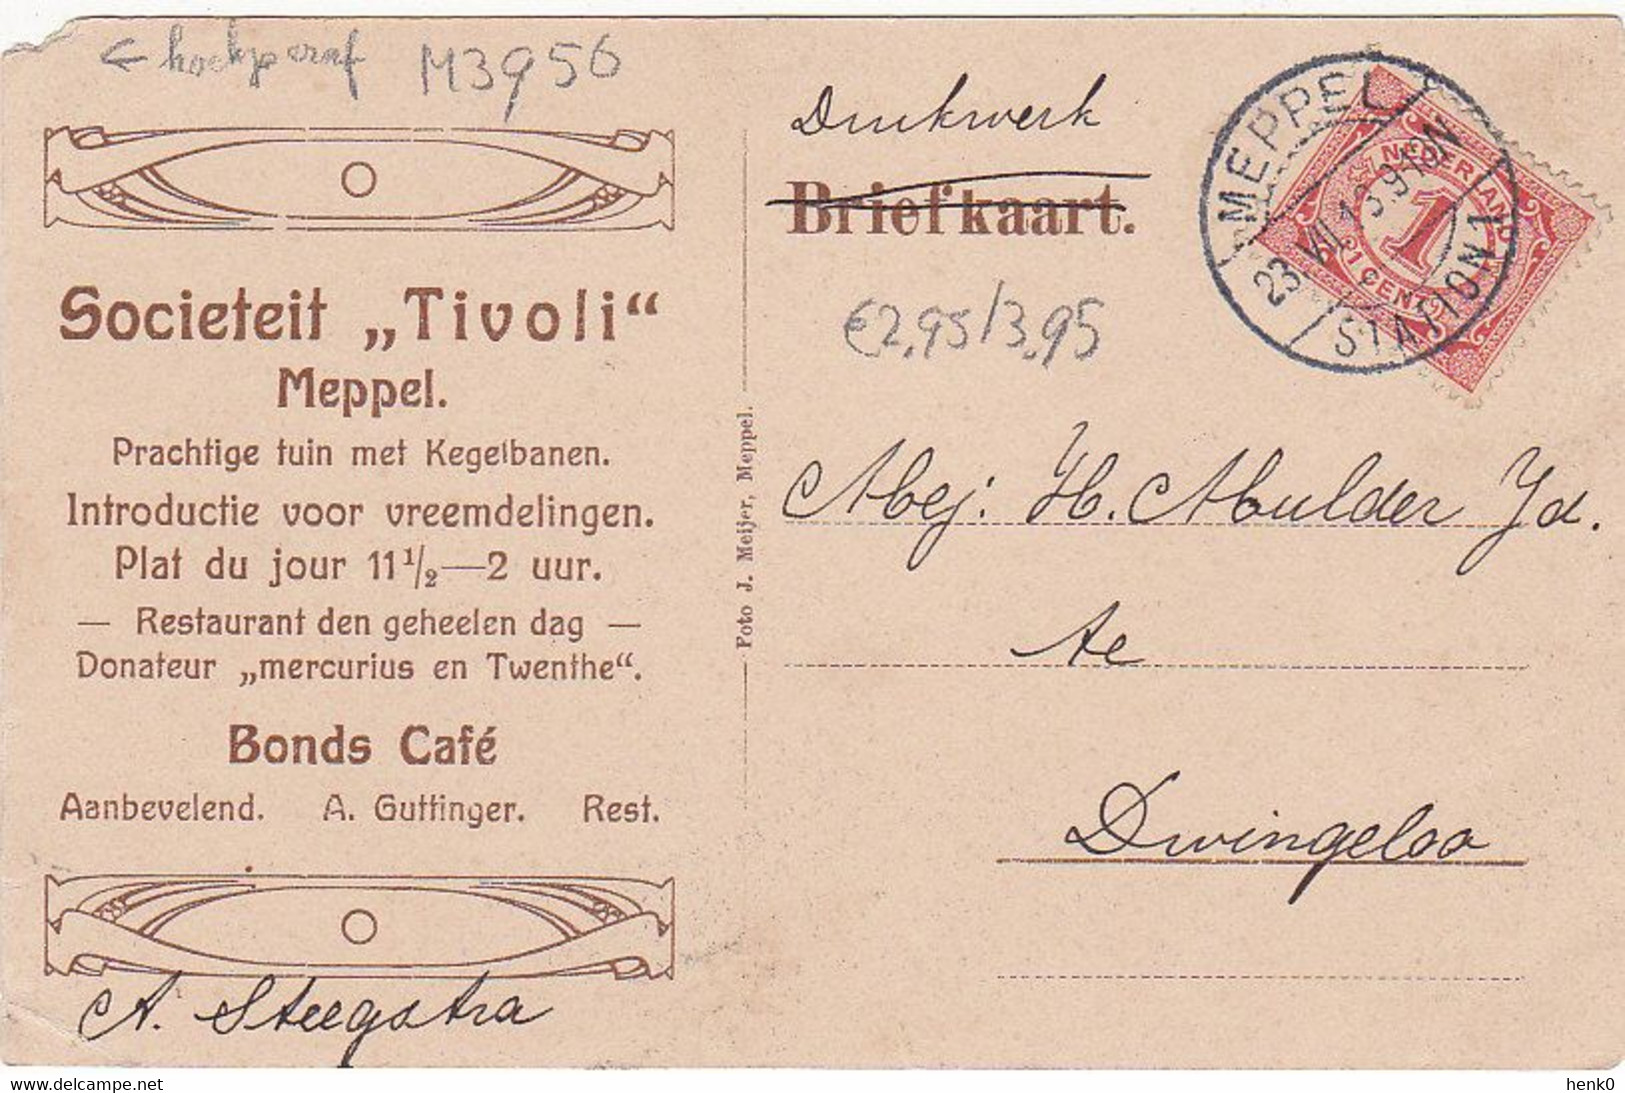 ← hoekje eraf M3956
Societeit „Tivoli“
Meppel.
Prachtige tuin met Kegelbanen.
Introductie voor vreemdelingen.
Plat du jour 11 1/2—2 uur.
— Restaurant den geheelen dag —
Donateur „mercurius en Twenthe“.
Bonds Café
Aanbevelend. A. Guttinger. Rest.
A. Steegstra
Foto J. Meijer, Meppel.
Drukwerk
Briefkaart.
€2,95/3,95
MEPPEL
23 VII 13. 9-10N
STATION 1
NEDERLAND
1
1 CENT
Mej: H. Mulder Jd.
te
Dwingeloo
delcampe.net
henk0